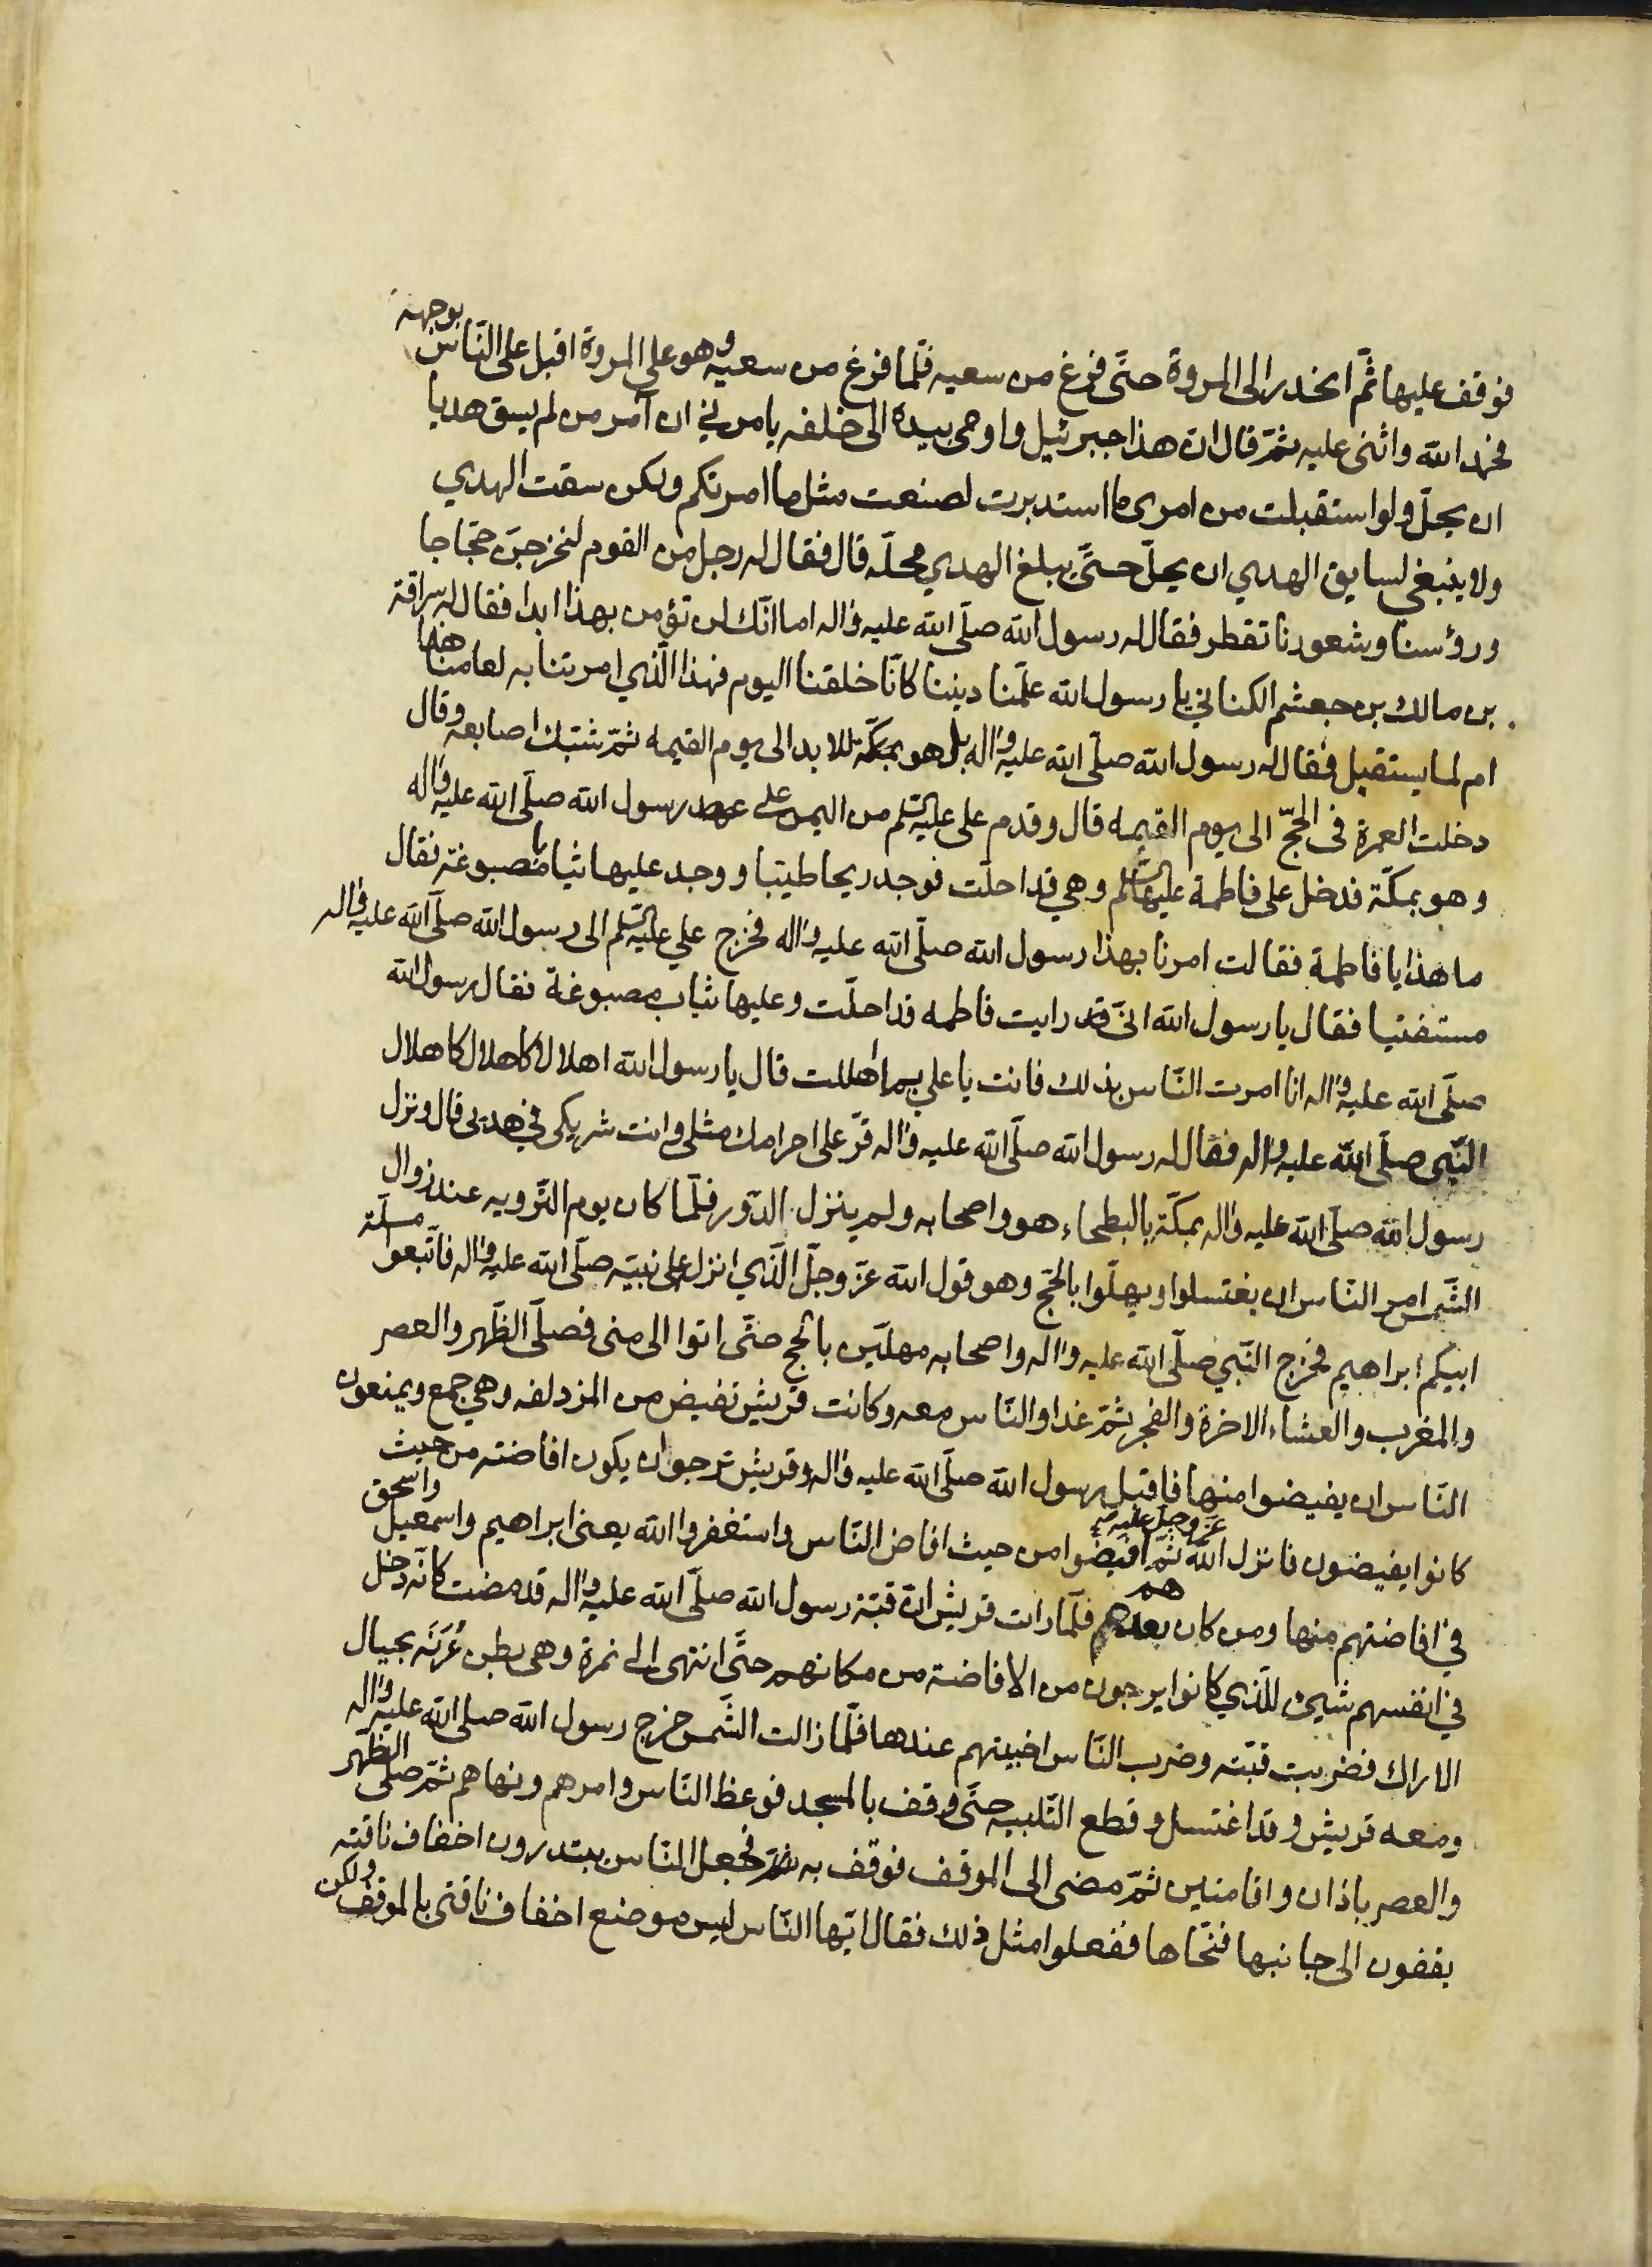 فوقف عليها ثمّ انحدر الى المروة حتّى فرغ من سعيه فلّما فرغ من سعيه وهو على المروة اقبل على النّاس بوجهه
فحمد الله واثنى عليه ثمّ قال انّ هذا جبرئيل واومى بيده الى خلفه يامرني ان آمر من لم يسق هديا
ان يحلّ ولو استقبلت من امرى ما استدبرت لصنعت مثل ما امرتكم ولكن سقت الهدي
ولا ينبغي لسايق الهدي ان يحلّ حتّى يبلغ الهدي محلّه قال فقال له رجل من القوم لنخرجنّ حجّاجا
ورؤسنا وشعورنا تقطر فقال له رسول الله صلّى الله عليه واله اما انّك لن تؤمن بهذا ابدا فقال له سراقة
بن مالك بن جعشم الكناني يا رسول الله علّمنا ديننا كانّا خلقنا اليوم فهذا الّذي امرتنا به لعامنا هذا
ام لما يستقبل فقال له رسول الله صلّى الله عليه واله بل هو بمكّة للابد الى يوم القيمه ثمّ شبّك اصابعه وقال
دخلت العمرة فى الحجّ الى يوم القيمه قال وقدم على عليه السّلم من اليمن على عهد رسول الله صلّى الله عليه واله
وهو بمكّة فدخل على فاطمة عليها السّلم وهي قد احلّت فوجد ريحا طيّبا ووجد عليها ثيابا مصبوغة فقال
ما هذا يا فاطمة فقالت امرنا بهذا رسول الله صلّى الله عليه واله فخرج علي عليه السّلم الى رسول الله صلّى الله عليه واله
مستفتيا فقال يا رسول الله انّى قد رايت فاطمه قد احلّت وعليها ثياب مصبوغة فقال رسول الله
صلّى الله عليه واله انا امرت النّاس بذلك فانت يا علي بم اهللت قال يا رسول الله اهلالا كاهلال كاهلال
النّبى صلّى الله عليه واله فقال له رسول الله صلّى الله عليه واله قرّ على احرامك مثلى وانت شريكى في هديى قال ونزل
رسول الله صلّى الله عليه واله بمكّة بالبطحاء هو واصحابه ولم ينزل الدّور فلّما كان يوم التّرويه عند زوال
الشّمس امر النّاس ان يغتسلوا ويهلّوا بالحّج وهو قول الله عزّ وجلّ الّذي انزل على نبيّه صلّى الله عليه واله فاتّبعوا مسلّة
ابيكم ابراهيم فخرج النّبي صلّى الله عليه واله واصحابه مهلّين بالحّج حتّى اتوا الى منى فصلّى الظّهر والعصر
والمغرب والعشاء الاخرة والفجر ثمّ غدا والنّاس معه وكانت قريش تفيض من المزدلفه وهي جمع ويمنعون
النّاس ان يفيضوا منها فاقبل رسول الله صلّى الله عليه واله وقريش ترجوا ان يكون افاضته من حيث
كانوا يفيضون فانزل الله عزّ وجلّ عليه ثمّ افيضوا من حيث افاض النّاس واستغفروا الله يعنى ابراهيم واسمعيل واسحق
في افاضتهم منها ومن كان بعدهم فلّما رات قريش انّ قبّة رسول الله صلّى الله عليه واله قد مضت كانّه دخل
في انفسهم شيئ للّذي كانوا يرجون من الافاضة من مكانهم حتّى انتهى الى نمرة وهى بطن عُرَنَه بحيال
الاراك فضربت قبّته وضرب النّاس اخبيتهم عندها فلّما زالت الشّمس خرج رسول الله صلى الله عليه واله
ومعه قريش وقد اغتسل وقطع التّلبيه حتّى وقف بالمسجد فوعظ النّاس وامرهم ونهاهم ثمّ صلّى الظّهر
والعصر باذان واقامتين ثمّ مضى الى الموقف فوقف به فجعل النّاس يبتدرون اخفاف ناقته
يقفون الى جانبها فنحّاها ففعلوا مثل ذلك فقال ايّها النّاس ليس موضع اخفاف ناقتى بالموقف ولكن